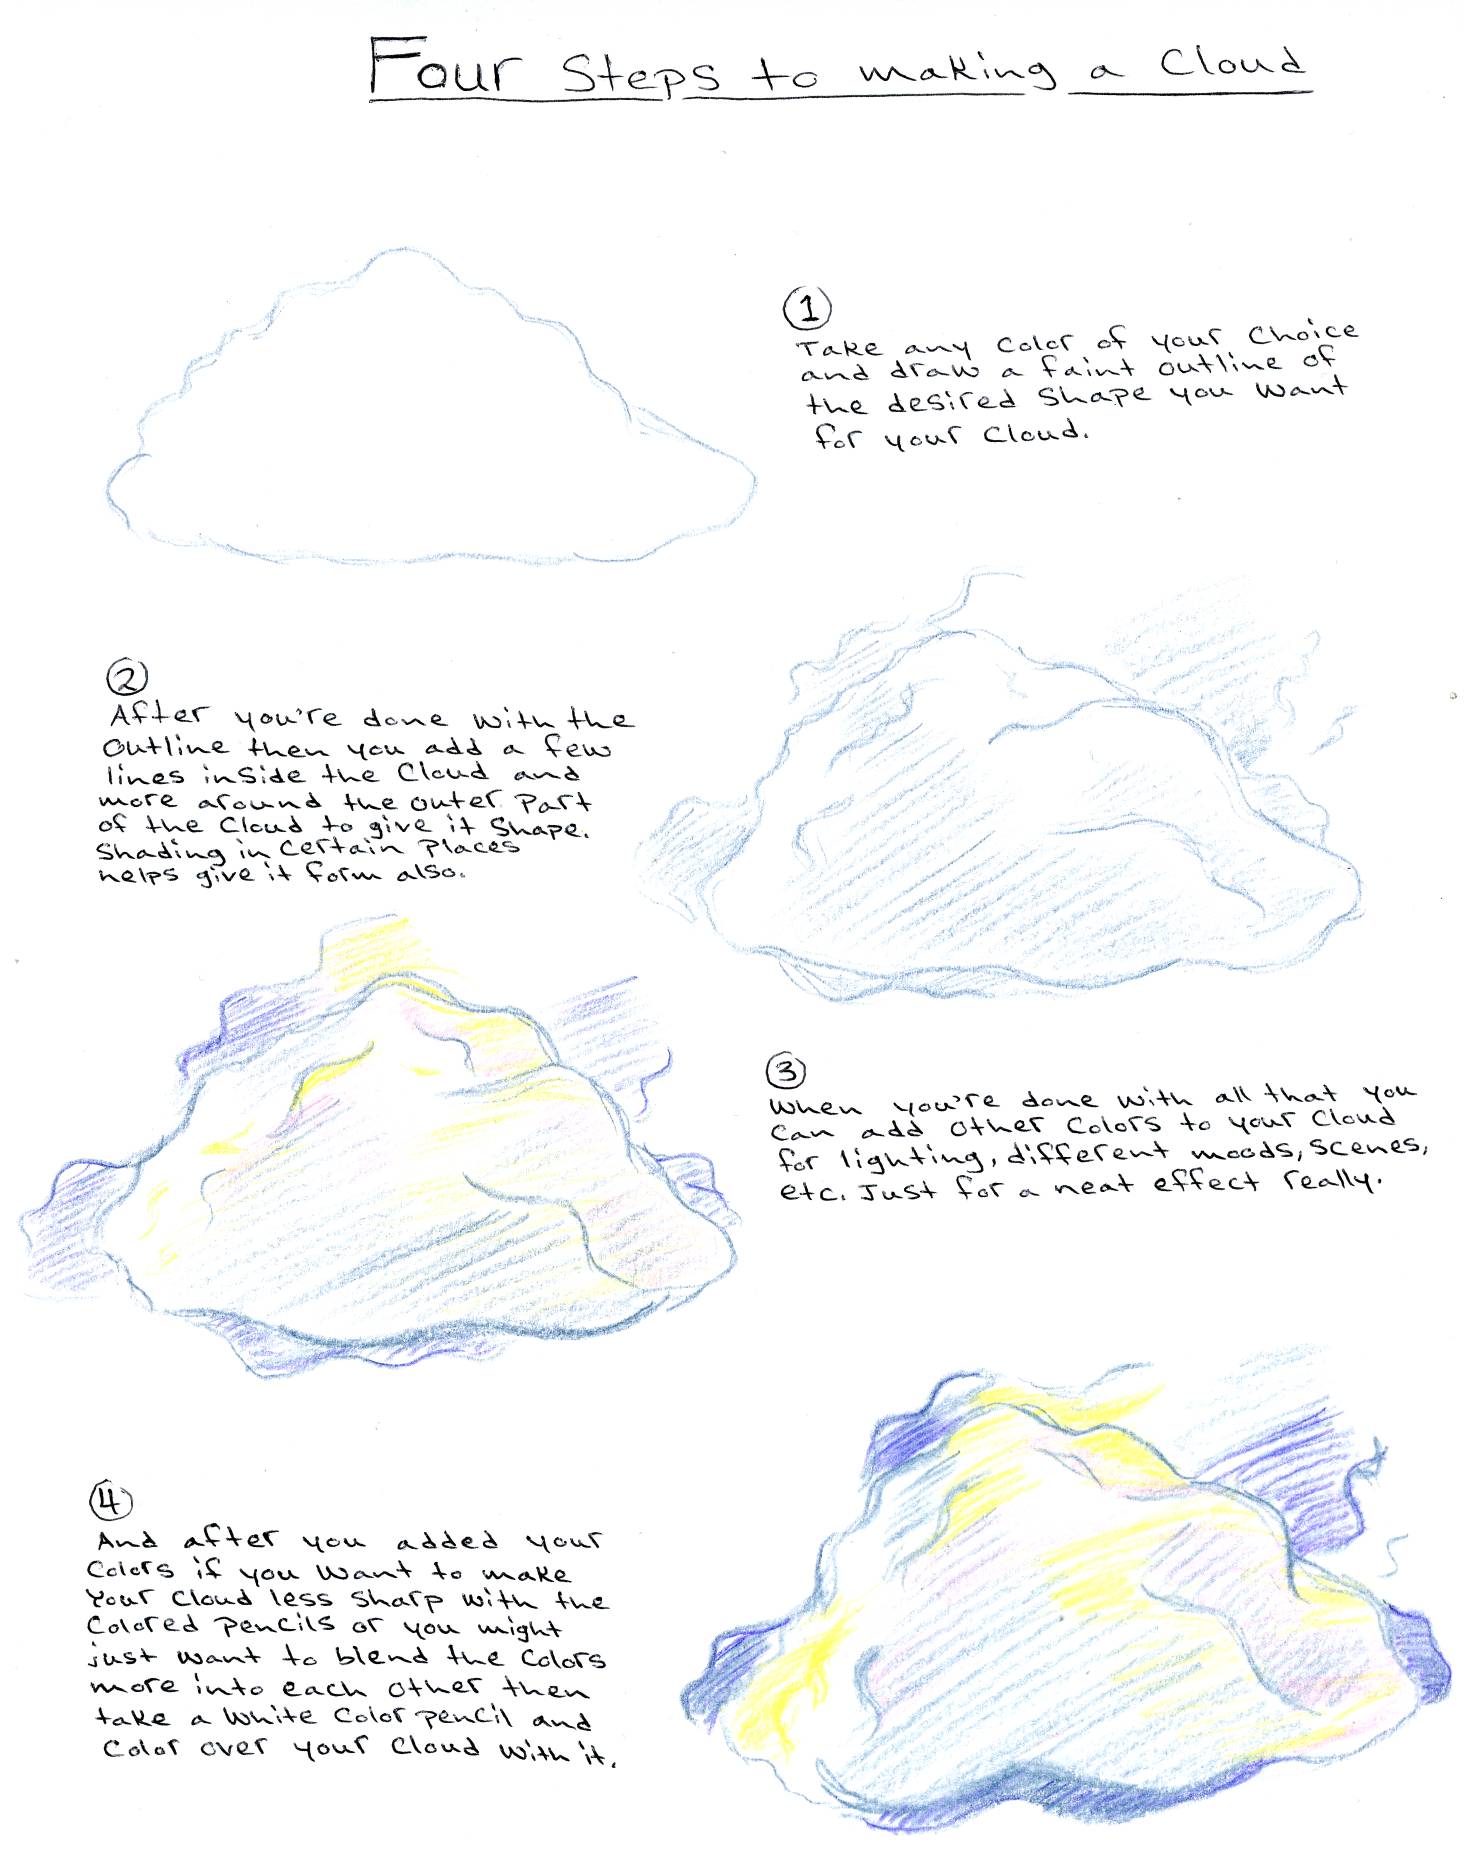 Four Steps to making a Cloud
1
Take any Color of your Choice
and draw a faint outline of
the desired Shape you Want
for your Cloud.
2
After you're done with the
Outline then you add a few
lines inside the Cloud and
more around the outer Part
of the Cloud to give it Shape.
Shading in Certain Places
helps give it form also.
3
When you're done with all that you
Can add other Colors to your Cloud
for lighting, different moods, Scenes,
etc. Just for a neat effect really.
4
And after you added your
Colors if you Want to make
Your Cloud less Sharp with the
Colored Pencils or you might
just want to blend the Colors
more into each other then
take a White Color pencil and
Color over your Cloud with it.